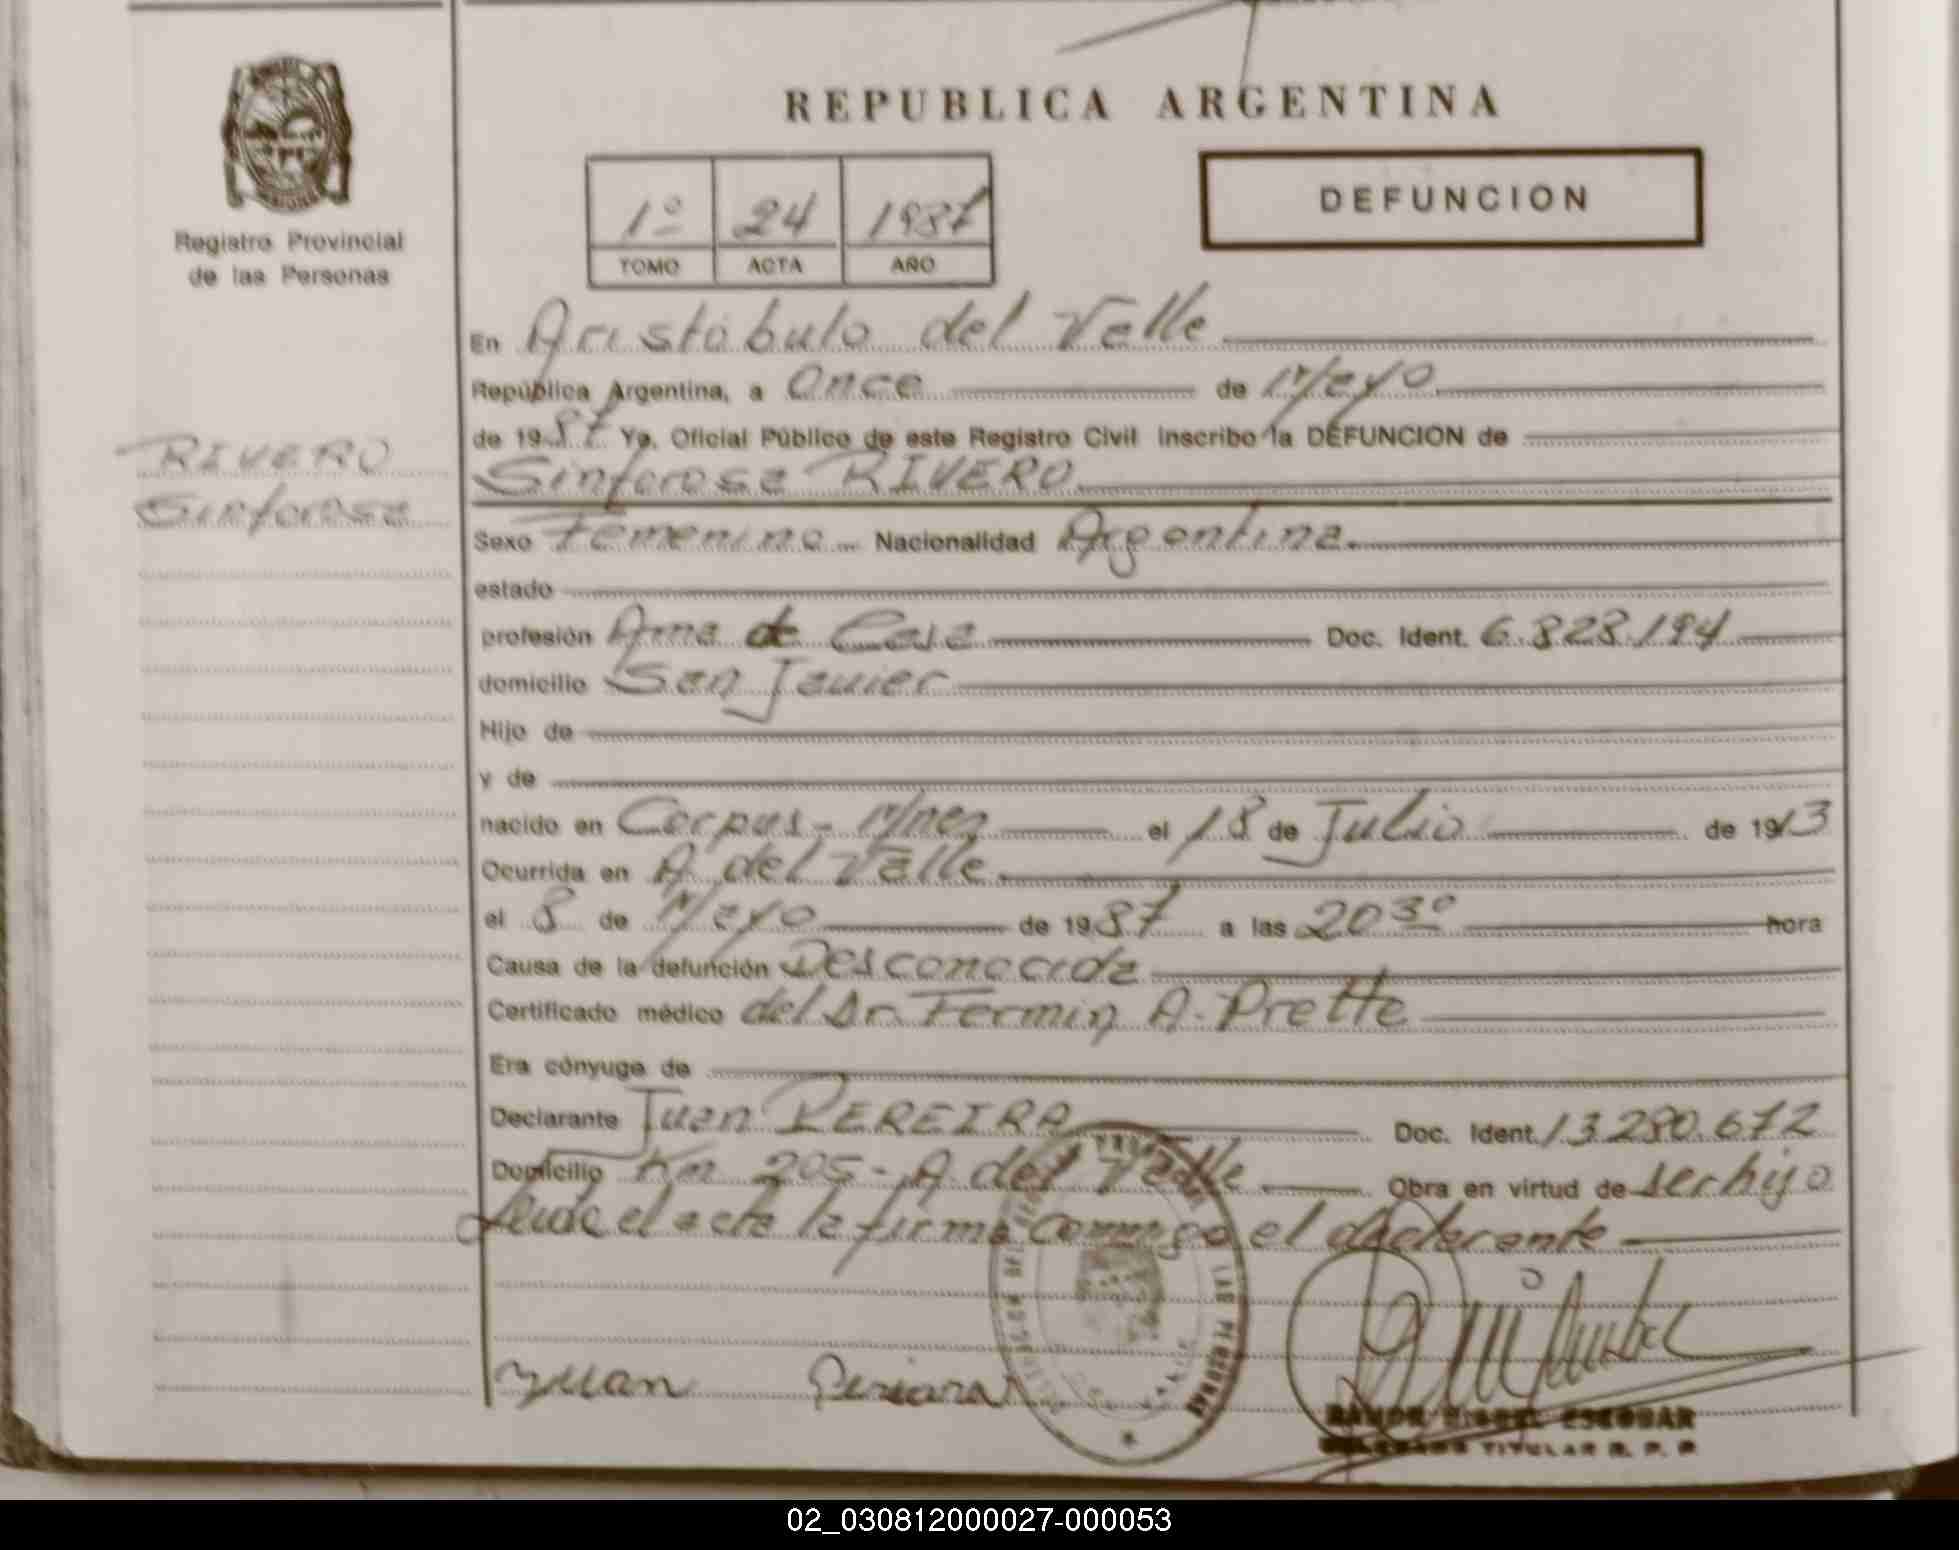 REPUBLICA ARGENTINA
Registro Provincial
de las Personas
1º 24 1987
TOMO ACTA AÑO
DEFUNCION
RIVERO
Sinforosa
En Aristóbulo del Valle
República Argentina, a Once de Mayo
de 1987 Yo, Oficial Público de este Registro Civil inscribo la DEFUNCION de
Sinforosa RIVERO
Sexo Femenino Nacionalidad Argentina.
estado
profesión Ama de Casa Doc. Ident. 6.828.194
domicilio San Javier
Hijo de
y de
nacido en Corpus - Mnes el 18 de Julio de 1913
Ocurrida en A. del Valle
el 8 de Mayo de 1987 a las 20 30 hora
Causa de la defunción Desconocida
Certificado médico del Dr. Fermin A. Prette
Era cónyuge de
Declarante Juan PEREIRA Doc. Ident. 13.280.672
Domicilio Km 205 - A. del Valle Obra en virtud de ser hijo
Leida el acta la firma conmigo el declarante
Juan
RAMON MIGUEL ESCOBAR
DELEGADO TITULAR R. P. P.
02_030812000027-000053